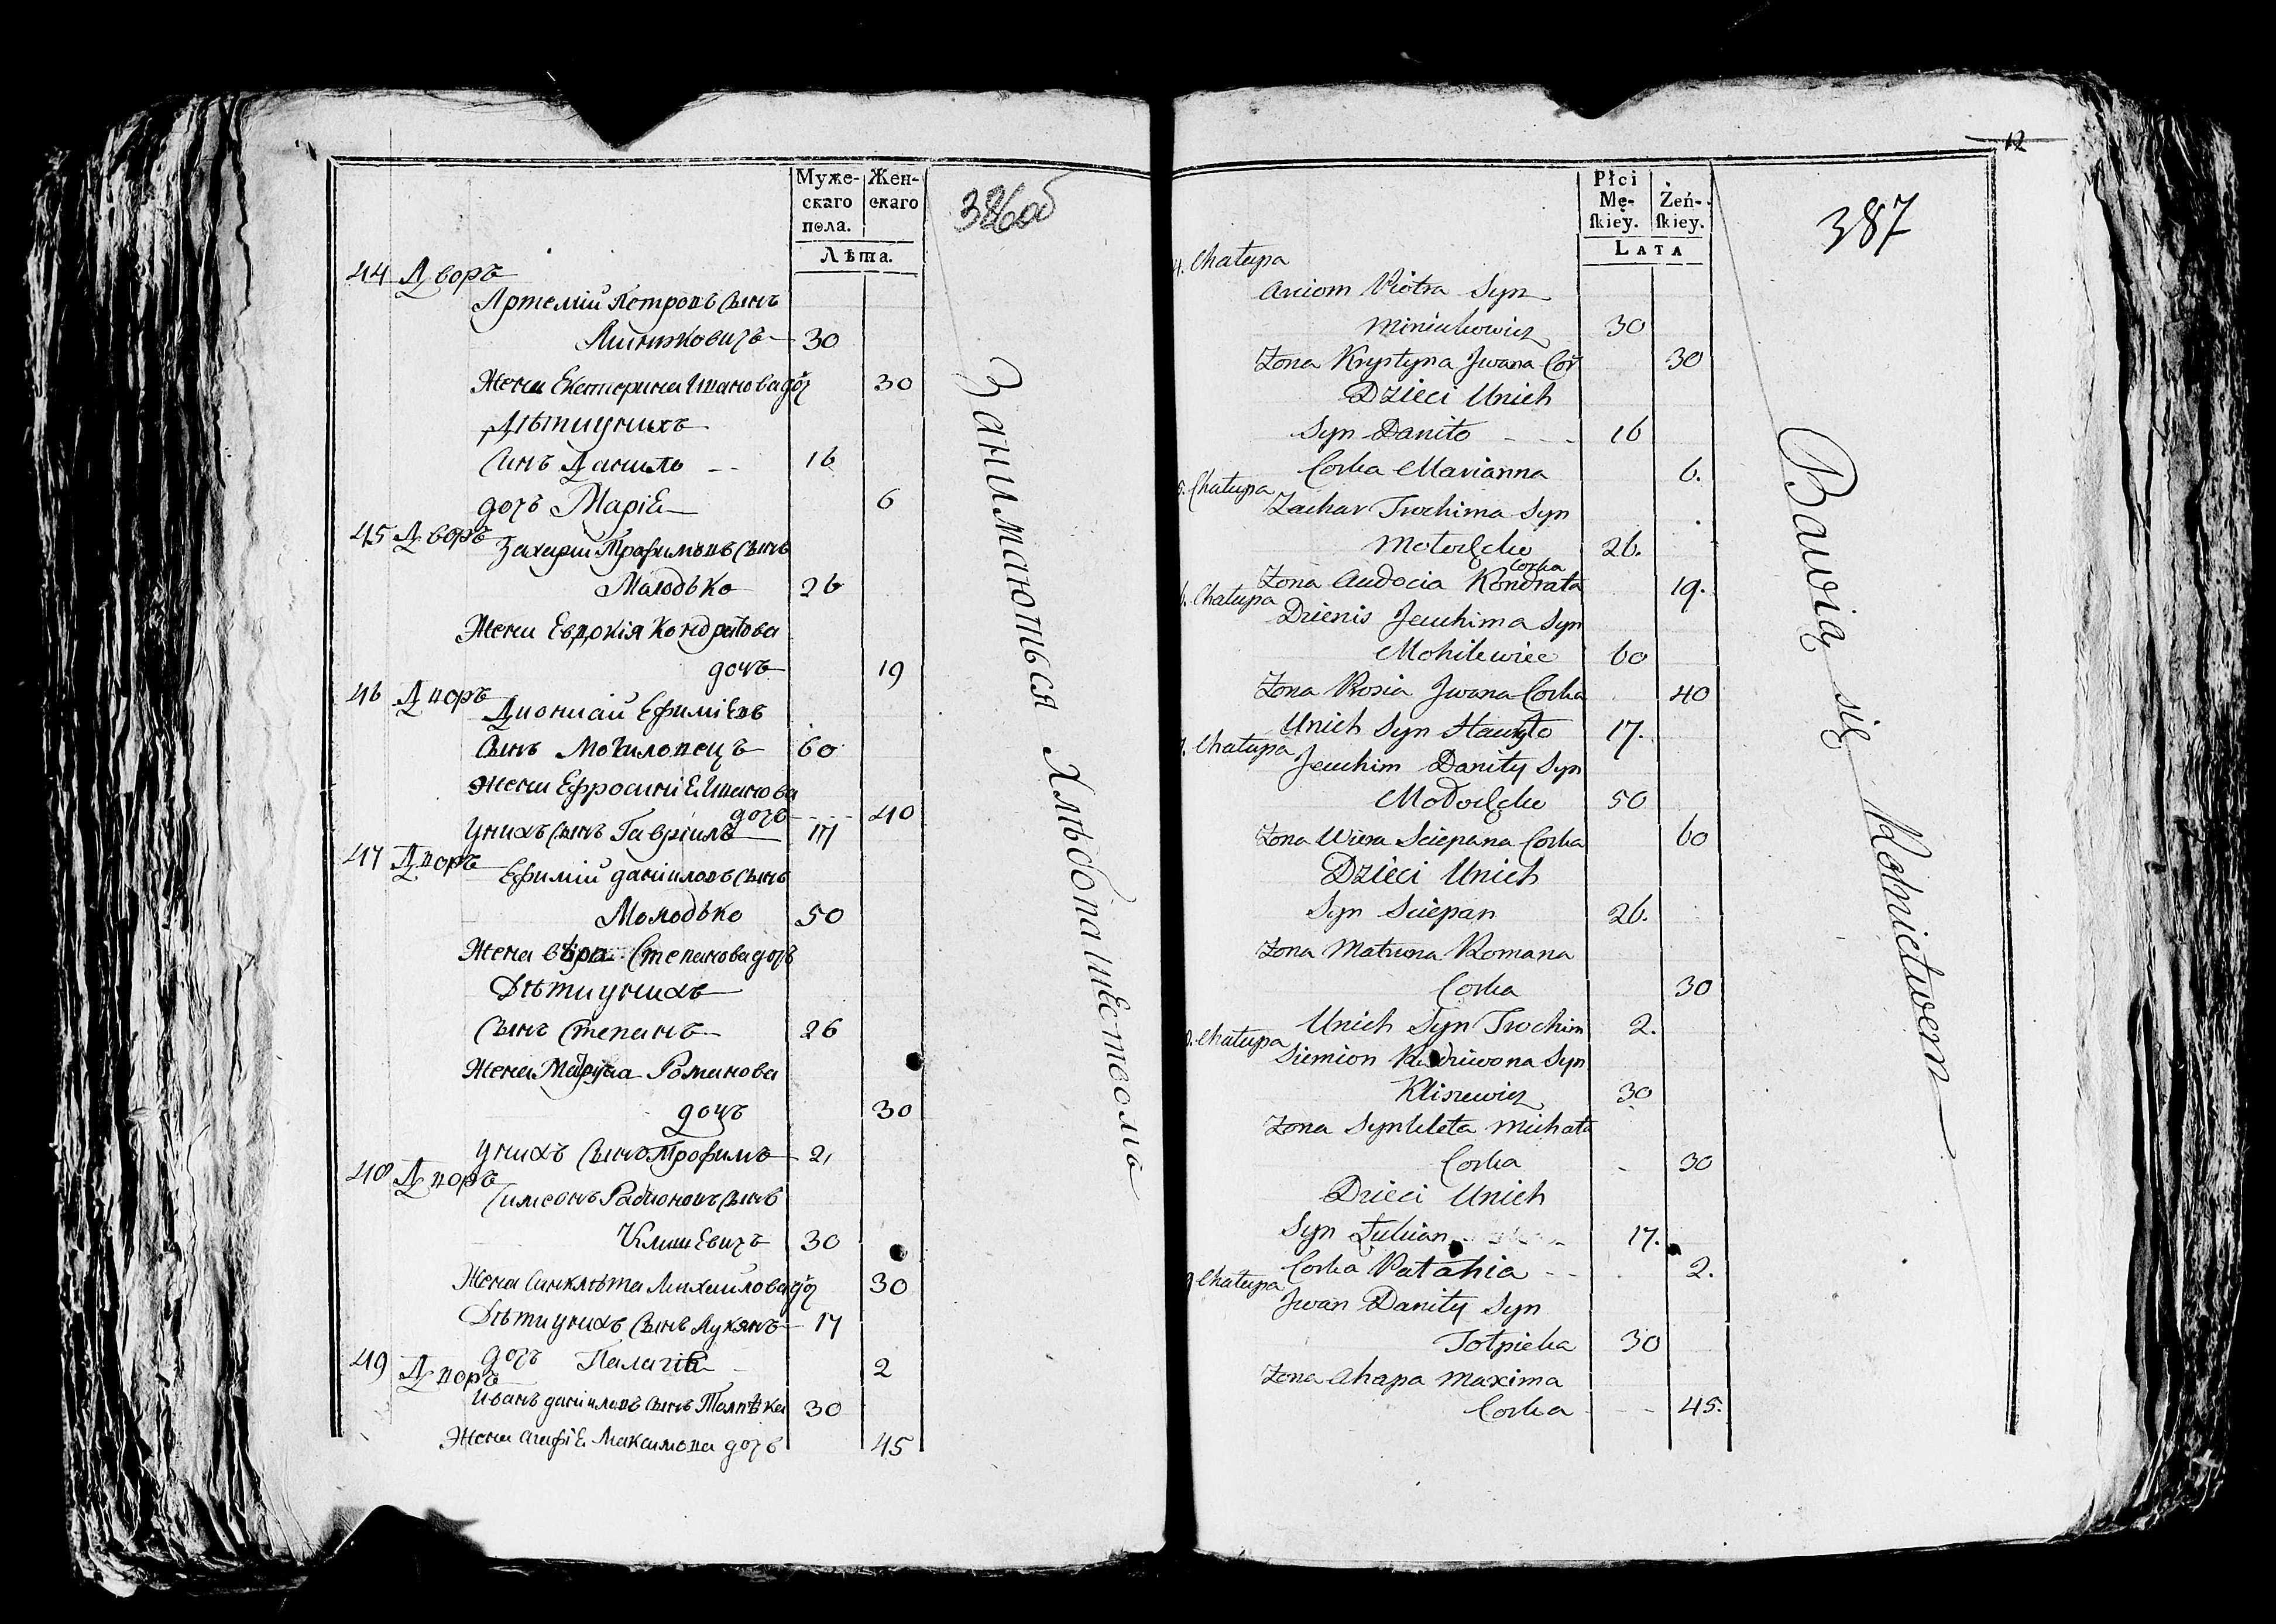 Муже-
скаго
пола.
Жен-
скаго
Лѣта.
386 об
44 Дворъ
Артемій Петровъ сынъ
Минюковичъ 30
Жена Екатерина Иванова доч 30
Дѣти у нихъ
Сынъ Данило -- 16
дочь Маріе 6
45 Дворъ
Захарій Трофимовъ сынъ
Малодько 26
Жена Евдокія Кондратова
дочь 19
46 Дворъ
Дионисій Ефиміевъ
сынъ Могилевецъ 60
Жена Ефросиніе Иванова
дочь 40
У нихъ сынъ Гавріилъ 17
47 Дворъ
Ефимій Даниловъ сынъ
Молодько 50
Жена Вѣра Степанова дочь
Дѣти у нихъ
Сынъ Степанъ 26
Жена Матруна Романова
дочь 30
У нихъ сынъ Трофимъ 2,
48 Дворъ
Симеонъ Радионовъ сынъ
Климевичъ 30
Жена Синклѣта Михаилова доч 30
Дѣти у нихъ сынъ Лукянъ 17
дочь Палагіе 2
49 Дворъ
Иванъ Даниловъ сынъ Толпѣка 30
Жена Агафіе Максимова дочь 45
Занимаються Хлѣбопашествомъ
12
Płci
Mę-
ſkiey.
Żeń-
ſkiey.
LATA
387
4. Chałupa
Arciom Piotra Syn
Miniukowicz 30
Żona Krystyna Jwana Cór 30
Dzieci Unich
Syn Daniło - - - 16
Corka Marianna 6.
5. Chałupa
Zachar Trochima Syn
Mołodcko 26.
Żona Audocia Kondrata Corka 19.
6. Chałupa
Dzienis Jeuchima Syn
Mohilewiec 60
Żona Prosia Jwana Corka 40
Unich Syn Hauryło 17.
7. Chałupa
Jeuchim Daniły Syn
Mołodcko 50
Żona Wiera Sciepana Corka 60
Dzieci Unich
Syn Sciepan 26.
Żona Matruna Romana
Corka 30
Unich Syn Trochim 2.
8. Chałupa
Siemion Radziwona Syn
Kliszewicz 30
Żona Synkleta Michała
Corka 30
Dzieci Unich
Syn Łukian 17.
Corka Pałahia - - 2.
9 Chałupa
Jwan Daniły Syn
Tołpieka 30
Żona Ahapa Maxima
Corka - - 45.
Bawią się Rolnictwem